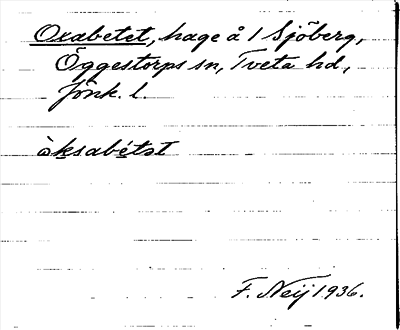 Oxabetet, hage å 1 Sjöberg,
Öggestorps sn, Tveta hd,
Jönk. l.
òksabétət
F. Neij 1936.